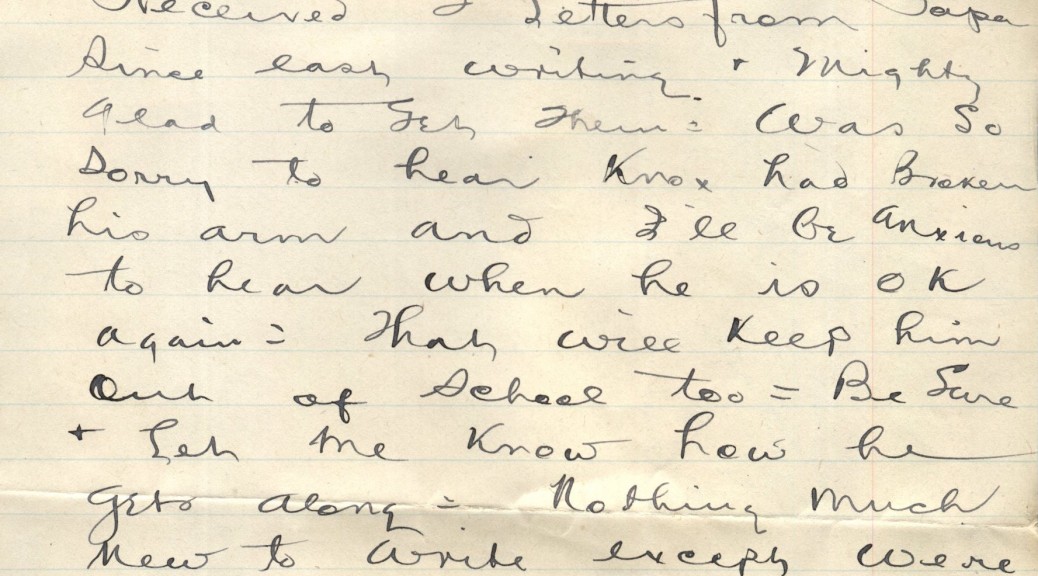 Received 2 Letters from Papa
Since last writing + Mighty
Glad to Get Them = Was So
Sorry to hear Knox had Broken
his arm and I'll Be Anxious
to hear when he is OK
again = That will Keep him
Out of School too = Be Sure
+ Let Me Know how he
Gets Along = Nothing Much
New to Write except We're